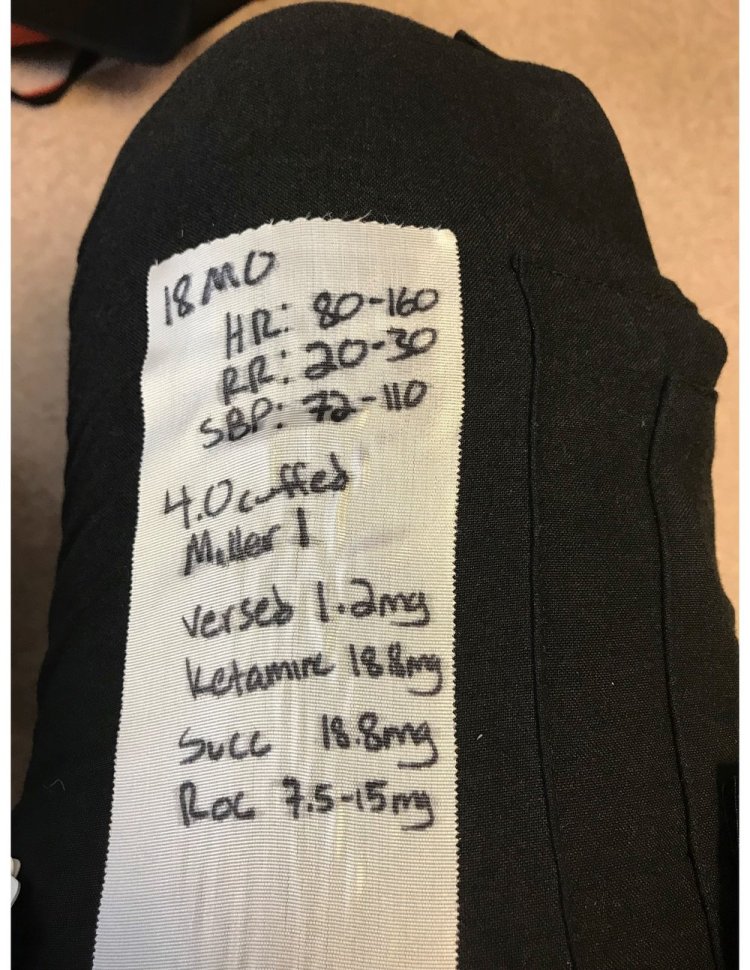 18 MO
HR: 80-160
RR: 20-30
SBP: 72-110
4.0 cuffed
Miller 1
versed 1.2mg
ketamine 18.8mg
Succ 18.8mg
Roc 7.5-15mg